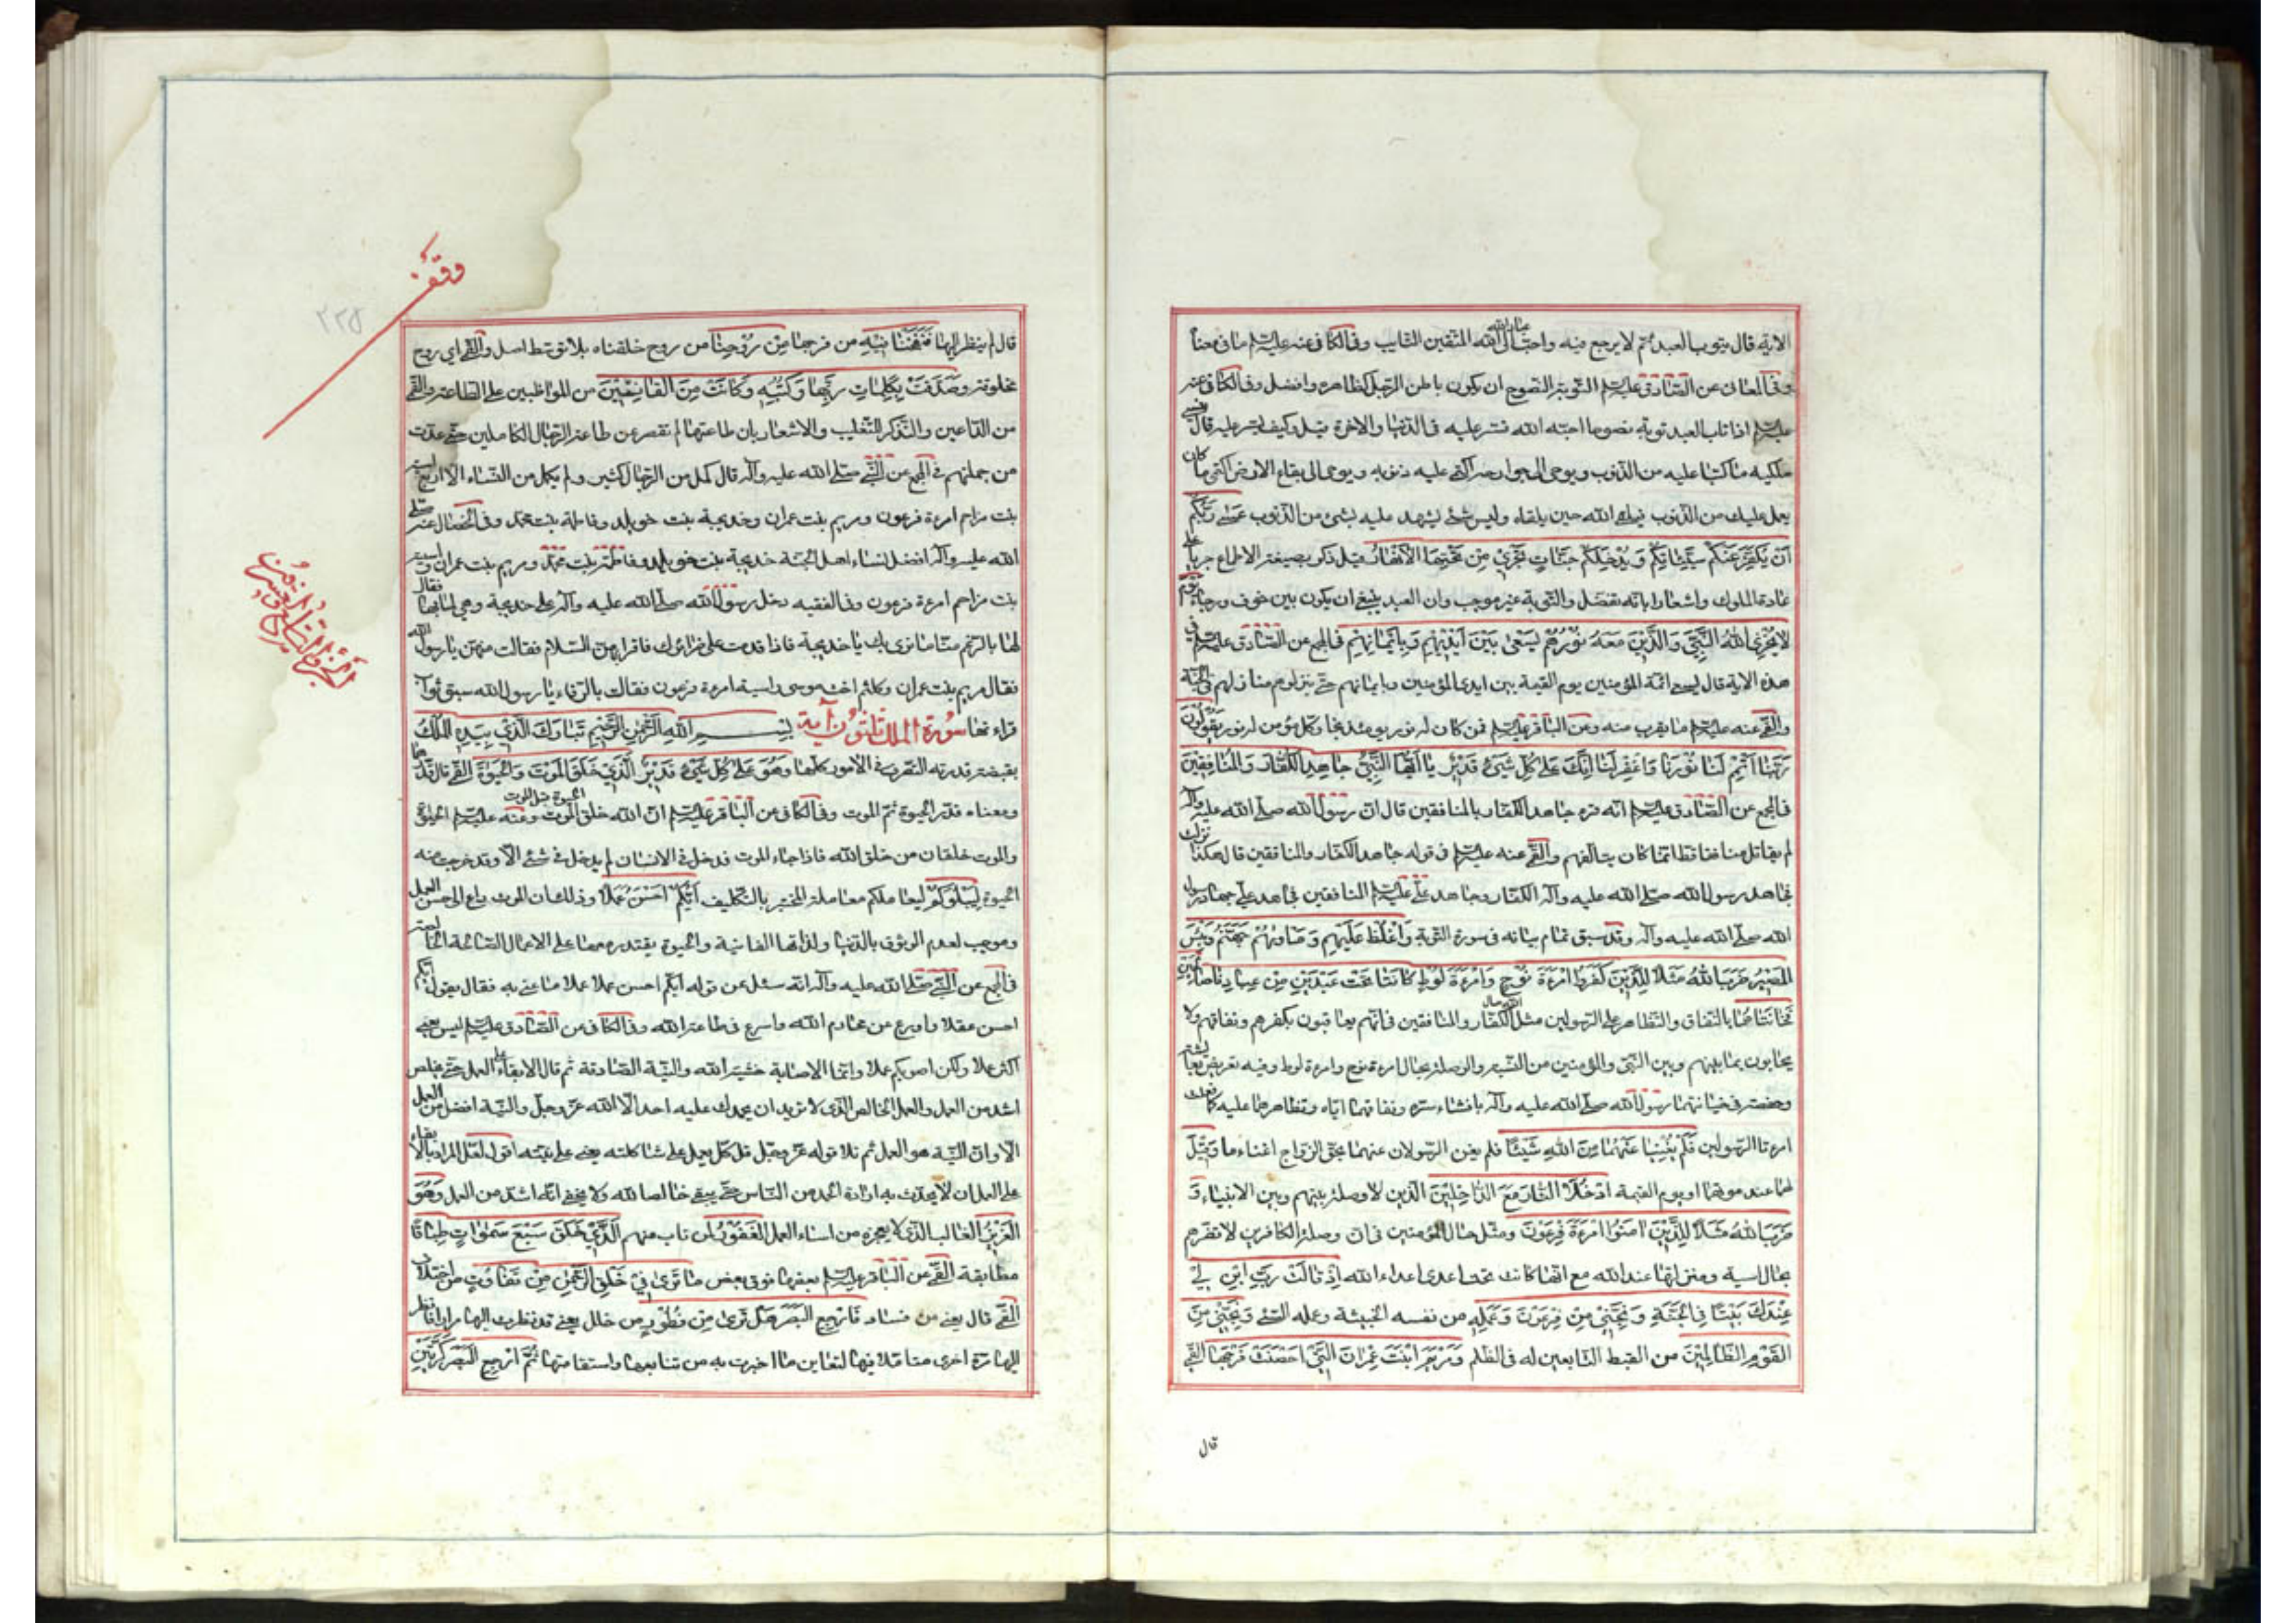 الاية قال يتوب العبد ثم لا يرجع فيه واحب عباد الله الى الله المتقين التايب وفي الكافي عنه عليه السلم ما في معناه
وفي المعاني عن الصادق عليه السلم التوبة النصوح ان يكون باطن الرجل كظاهره وافضل وفي الكافي عنه
عليه السلم اذا تاب العبد توبة نصوحا احبه الله فستر عليه في الدنيا والاخرة فيل وكيف يستر عليه قال ينسى
ملكيه ما كتبا عليه من الذنوب ويوحى الى جوارحه اكتمى عليه ذنوبه ويوحى الى بقاع الارض اكتمى ما كان
يعمل عليك من الذنوب فيلقى الله حين يلقاه وليس شئ يشهد عليه بشئ من الذنوب عَسٰى رَبُّكُمْ
اَنْ يُكَفِّرَ عَنْكُمْ سَيِّئَاتِكُمْ وَيُدْخِلَكُمْ جَنَّاتٍ تَجْرِي مِنْ تَحْتِهَا الْاَنْهَارُ قيل ذكر بصيغة الاطماع جريا على
عادة الملوك واشعارا بانه تفضل والتوبة غير موجب وان العبد ينبغي ان يكون بين خوف ورجاء يَوْمَ
لَا يُخْزِى اللهُ النَّبِيَّ وَالَّذِينَ مَعَهُ نُورُهُمْ يَسْعٰى بَيْنَ اَيْدِيهِمْ وَبِاَيْمَانِهِمْ في المجمع عن الصادق عليه السلم في
هذه الاية قال يسعى ائمة المؤمنين يوم القيمة بين ايدى المؤمنين وبايمانهم حتى ينزلوهم منازلهم في الجنة
والقمي عنه عليه السلم ما يقرب منه وعن الباقر عليه السلم فمن كان له نور يومئذ نجا وكل مؤمن له نور يَقُولُونَ
رَبَّنَا اَتْمِمْ لَنَا نُورَنَا وَاغْفِرْ لَنَا اِنَّكَ عَلٰى كُلِّ شَيْءٍ قَدِيرٌ يَا اَيُّهَا النَّبِيُّ جَاهِدِ الْكُفَّارَ وَالْمُنَافِقِينَ
في المجمع عن الصادق عليه السلم انه قرء جاهد الكفار بالمنافقين قال ان رسول الله صلى الله عليه وآله
لم يقاتل منافقا قط انما كان يتالفهم والقمي عنه عليه السلم في قوله جاهد الكفار والمنافقين قال هكذا نزلت
فجاهد رسول الله صلى الله عليه وآله الكفار وجاهد علي عليه السلم المنافقين فجاهد علي جهاد رسول
الله صلى الله عليه وآله وقد سبق تمام بيانه في سورة التوبة وَاغْلُظْ عَلَيْهِمْ وَمَاْوٰهُمْ جَهَنَّمُ وَبِئْسَ
الْمَصِيرُ ضَرَبَ اللهُ مَثَلًا لِلَّذِينَ كَفَرُوا امْرَءَةَ نُوحٍ وَامْرَءَةَ لُوطٍ كَانَتَا تَحْتَ عَبْدَيْنِ مِنْ عِبَادِنَا صَالِحَيْنِ
فَخَانَتَاهُمَا بالنفاق والتظاهر على الرسولين مثل الله حال الكفار والمنافقين في انهم يعاقبون بكفرهم ونفاقهم ولا
يحابون بما بينهم وبين النبي والمؤمنين من النسبة والوصلة بحال امرءة نوح وامرءة لوط وفيه تعريض بعايشة
وحفصة في خيانتهما رسول الله صلى الله عليه وآله بافشاء سره ونفاقهما اياه وتظاهرهما عليه كما فعلت
امرءتا الرسولين فَلَمْ يُغْنِيَا عَنْهُمَا مِنَ اللهِ شَيْئًا فلم يغن الرسولان عنهما بحق الزواج اغناء ما وَقِيلَ
لهما عند موتهما او يوم القيمة ادْخُلَا النَّارَ مَعَ الدَّاخِلِينَ الذين لا وصلة بينهم وبين الانبياء وَ
ضَرَبَ اللهُ مَثَلًا لِلَّذِينَ اٰمَنُوا امْرَءَةَ فِرْعَوْنَ ومثل حال المؤمنين في ان وصلة الكافرين لا تضرهم
بحال اسية ومنزلتها عند الله مع انها كانت تحت اعدى اعداء الله اِذْ قَالَتْ رَبِّ ابْنِ لِي
عِنْدَكَ بَيْتًا فِي الْجَنَّةِ وَنَجِّنِي مِنْ فِرْعَوْنَ وَعَمَلِهِ من نفسه الخبيثة وعمله السئ وَنَجِّنِي مِنَ
الْقَوْمِ الظَّالِمِينَ من القبط التابعين له في الظلم وَمَرْيَمَ ابْنَتَ عِمْرَانَ الَّتِي اَحْصَنَتْ فَرْجَهَا القمي
قال
وقف
٢٢٥
قال لم ينظر اليها فَنَفَخْنَا فِيهِ من فرجها مِنْ رُوحِنَا من روح خلقناه بلا توسط اصل والقمي اي روح
مخلوقة وَصَدَّقَتْ بِكَلِمَاتِ رَبِّهَا وَكُتُبِهِ وَكَانَتْ مِنَ الْقَانِتِينَ من المواظبين على الطاعة والقمي
من الداعين والتذكير للتغليب والاشعار بان طاعتها لم تقصر عن طاعة الرجال الكاملين حتى عدت
من جملتهم في المجمع عن النبي صلى الله عليه وآله قال كمل من الرجال كثير ولم يكمل من النساء الا اربع اسية
بنت مزاحم امرءة فرعون ومريم بنت عمران وخديجة بنت خويلد وفاطمة بنت محمد وفي الخصال عنه صلى
الله عليه وآله افضل نساء اهل الجنة خديجة بنت خويلد وفاطمة بنت محمد ومريم بنت عمران واسية
بنت مزاحم امرءة فرعون وفي الفقيه دخل رسول الله صلى الله عليه وآله على خديجة وهي لما بها فقال
لها بالرغم منا ما نرى بك يا خديجة فاذا قدمت على ضرائرك فاقرايهن السلام فقالت من هن يا رسول الله
فقال مريم بنت عمران وكلثم اخت موسى واسية امرءة فرعون فقالت بالرفاء يا رسول الله سبق ثواب
قراءتها سورة الملك ثلثون آية بِسْمِ اللهِ الرَّحْمٰنِ الرَّحِيمِ تَبَارَكَ الَّذِي بِيَدِهِ الْمُلْكُ
بقبضة قدرته التصرف في الامور كلها وَهُوَ عَلٰى كُلِّ شَيْءٍ قَدِيرٌ الَّذِي خَلَقَ الْمَوْتَ وَالْحَيٰوةَ القمي قال قدرهما
ومعناه قدر الحيوة ثم الموت وفي الكافي عن الباقر عليه السلم ان الله خلق الحيوة قبل الموت وعنه عليه السلم الحيوة
والموت خلقان من خلق الله فاذا جاء الموت فدخل في الانسان لم يدخل في شئ الا وقد خرجت منه
الحيوة لِيَبْلُوَكُمْ ليعاملكم معاملة المختبر بالتكليف اَيُّكُمْ اَحْسَنُ عَمَلًا وذلك ان الموت داع الى حسن العمل
وموجب لعدم الوثوق بالدنيا ولذاتها الفانية والحيوة يقتدر معها على الاعمال الصالحة الخالصة
في المجمع عن النبي صلى الله عليه وآله انه سئل عن قوله ايكم احسن عملا ما عنى به فقال يقول ايكم
احسن عقلا واورع عن محارم الله واسرع في طاعة الله وفي الكافي عن الصادق عليه السلم ليس يعني
اكثر عملا ولكن اصوبكم عملا وانما الاصابة خشية الله والنية الصادقة ثم قال الابقاء على العمل حتى يخلص
اشد من العمل والعمل الخالص الذي لا تريد ان يحمدك عليه احد الا الله عز وجل والنية افضل من العمل
الا وان النية هو العمل ثم تلا قوله عز وجل قل كل يعمل على شاكلته يعني على نيته اقول لعل المراد بالابقاء
على العمل ان لا يحدث به ارادة الحمد من الناس حتى يبقى خالصا لله ولا يخفى انه اشد من العمل وَهُوَ
الْعَزِيزُ الغالب الذي لا يعجزه من اساء العمل الْغَفُورُ لمن تاب منهم الَّذِي خَلَقَ سَبْعَ سَمٰوَاتٍ طِبَاقًا
مطابقة القمي عن الباقر عليه السلم بعضها فوق بعض مَا تَرٰى فِي خَلْقِ الرَّحْمٰنِ مِنْ تَفَاوُتٍ من اختلاف
القمي قال يعني من فساد فَارْجِعِ الْبَصَرَ هَلْ تَرٰى مِنْ فُطُورٍ من خلل يعني قد نظرت اليها مرارا فانظر
اليها مرة اخرى متاملا فيها لتعاين ما اخبرت به من تناسبها واستقامتها ثُمَّ ارْجِعِ الْبَصَرَ كَرَّتَيْنِ